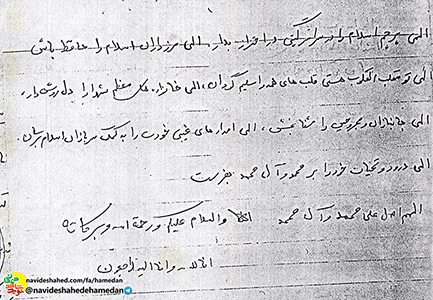 الهی پرچم اسلام را در سراسر گیتی در اهتزاز بدار، الهی مرزداران اسلام را حافظ باش
الهی تو مقلب القلوب هستی قلب های همه را سلیم گردان، الهی خانواده های معظم شهدا را دل روشن دار،
الهی جانبازان و مجروحین را شفا بخش، الهی امدادهای غیبی خودت را به کمک سربازان اسلام برسان.
الهی درود و تحیات خود را بر محمد و آل محمد بفرست
اللهم صل علی محمد و آل محمد والسلام علیکم و رحمة الله و برکاته
انا لله و انا الیه راجعون
navideshahed.com/fa/hamedan
@navideshahedehamedan